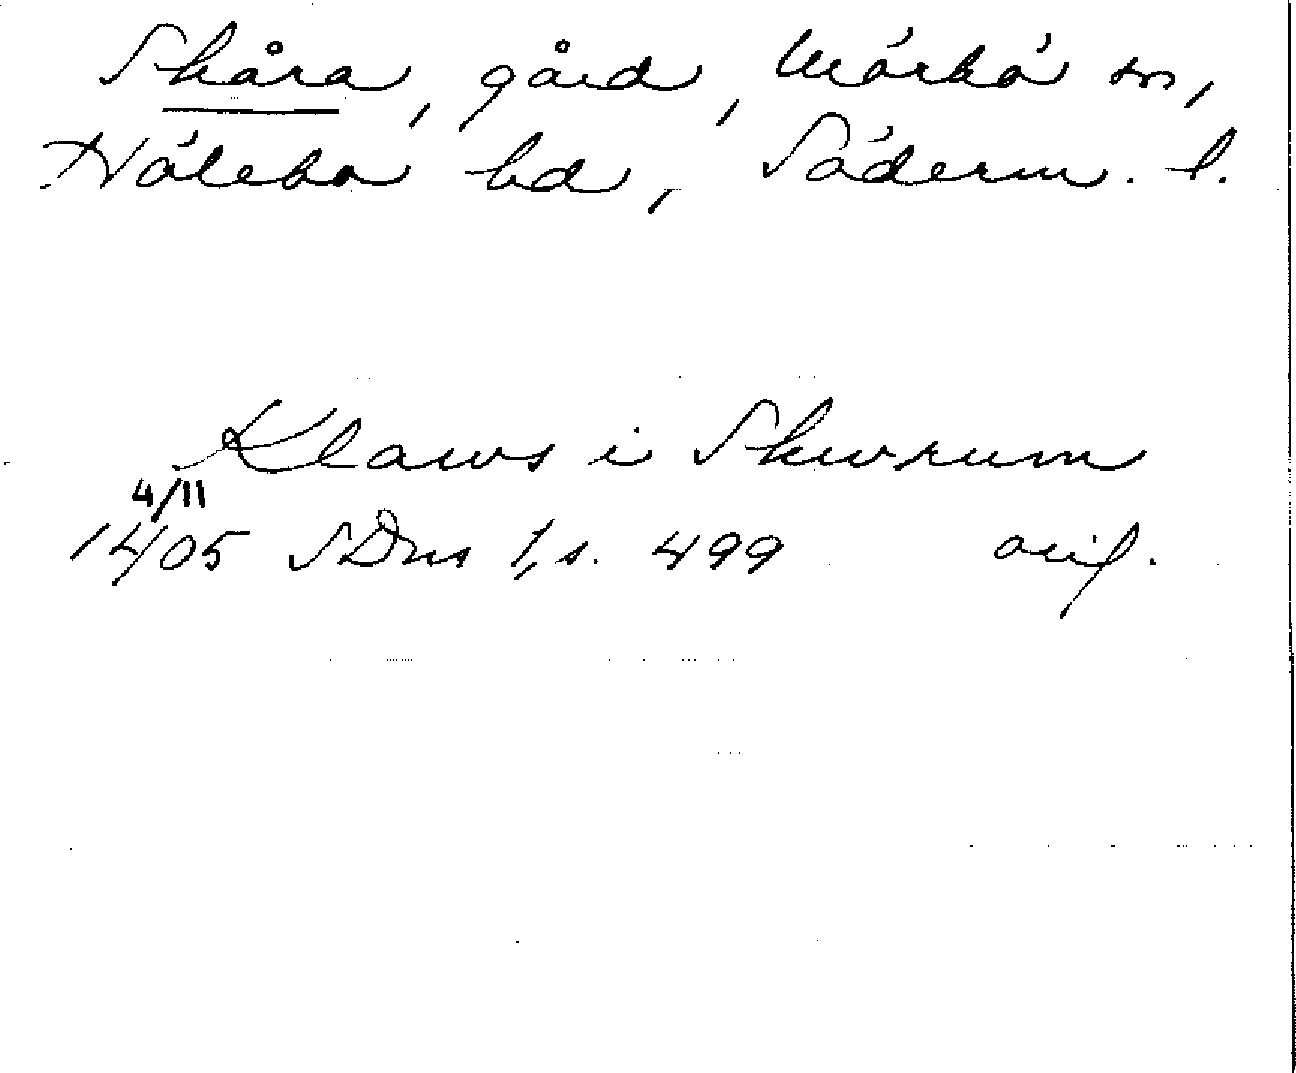 Skåra, gård, Mörkö sn,
Hölebo hd, Söderm. l.
Klaws i Skwrum
4/11
1405 SDns 1, s. 499 orig.